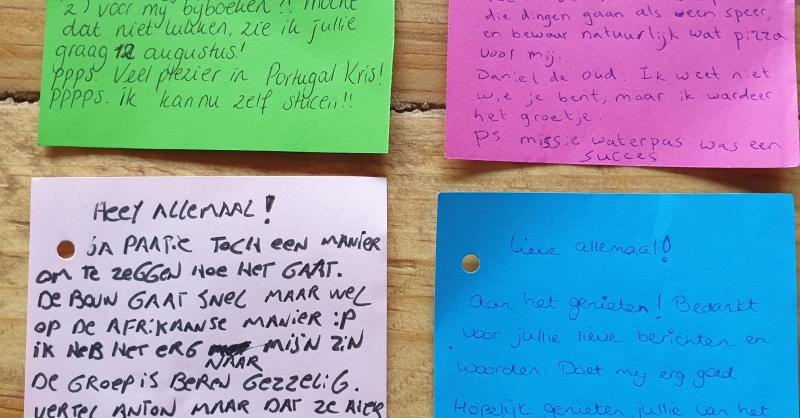 2) voor my bijboeken!! Mocht
dat niet lukken, zie ik jullie
graag 12 augustus!
PPPS. Veel plezier in Portugal Kris!
PPPPS. ik kan nu zelf stucen!!
die dingen gaan als een speer,
en bewaar natuurlijk wat pizza
voor mij.
Daniel de oud: Ik weet niet
wie je bent, maar ik wardeer
het groetje.
PS missie waterpas was een
succes
HEEY ALLEMAAL!
JA PAATJE TOCH EEN MANIER
OM TE ZEGGEN HOE HET GAAT.
DE BOUW GAAT SNEL MAAR WEL
OP DE AFRIKAANSE MANIER :P
IK HEB HET ERG NAAR MIJN ZIN
DE GROEP IS BEREN GEZZELIG.
VERTEL ANTON MAAR DAT ZE HIER
Lieve allemaal!
Aan het genieten! Bedankt
voor jullie lieve berichten en
woorden. Doet mij erg goed.
Hopelijk genieten jullie van het